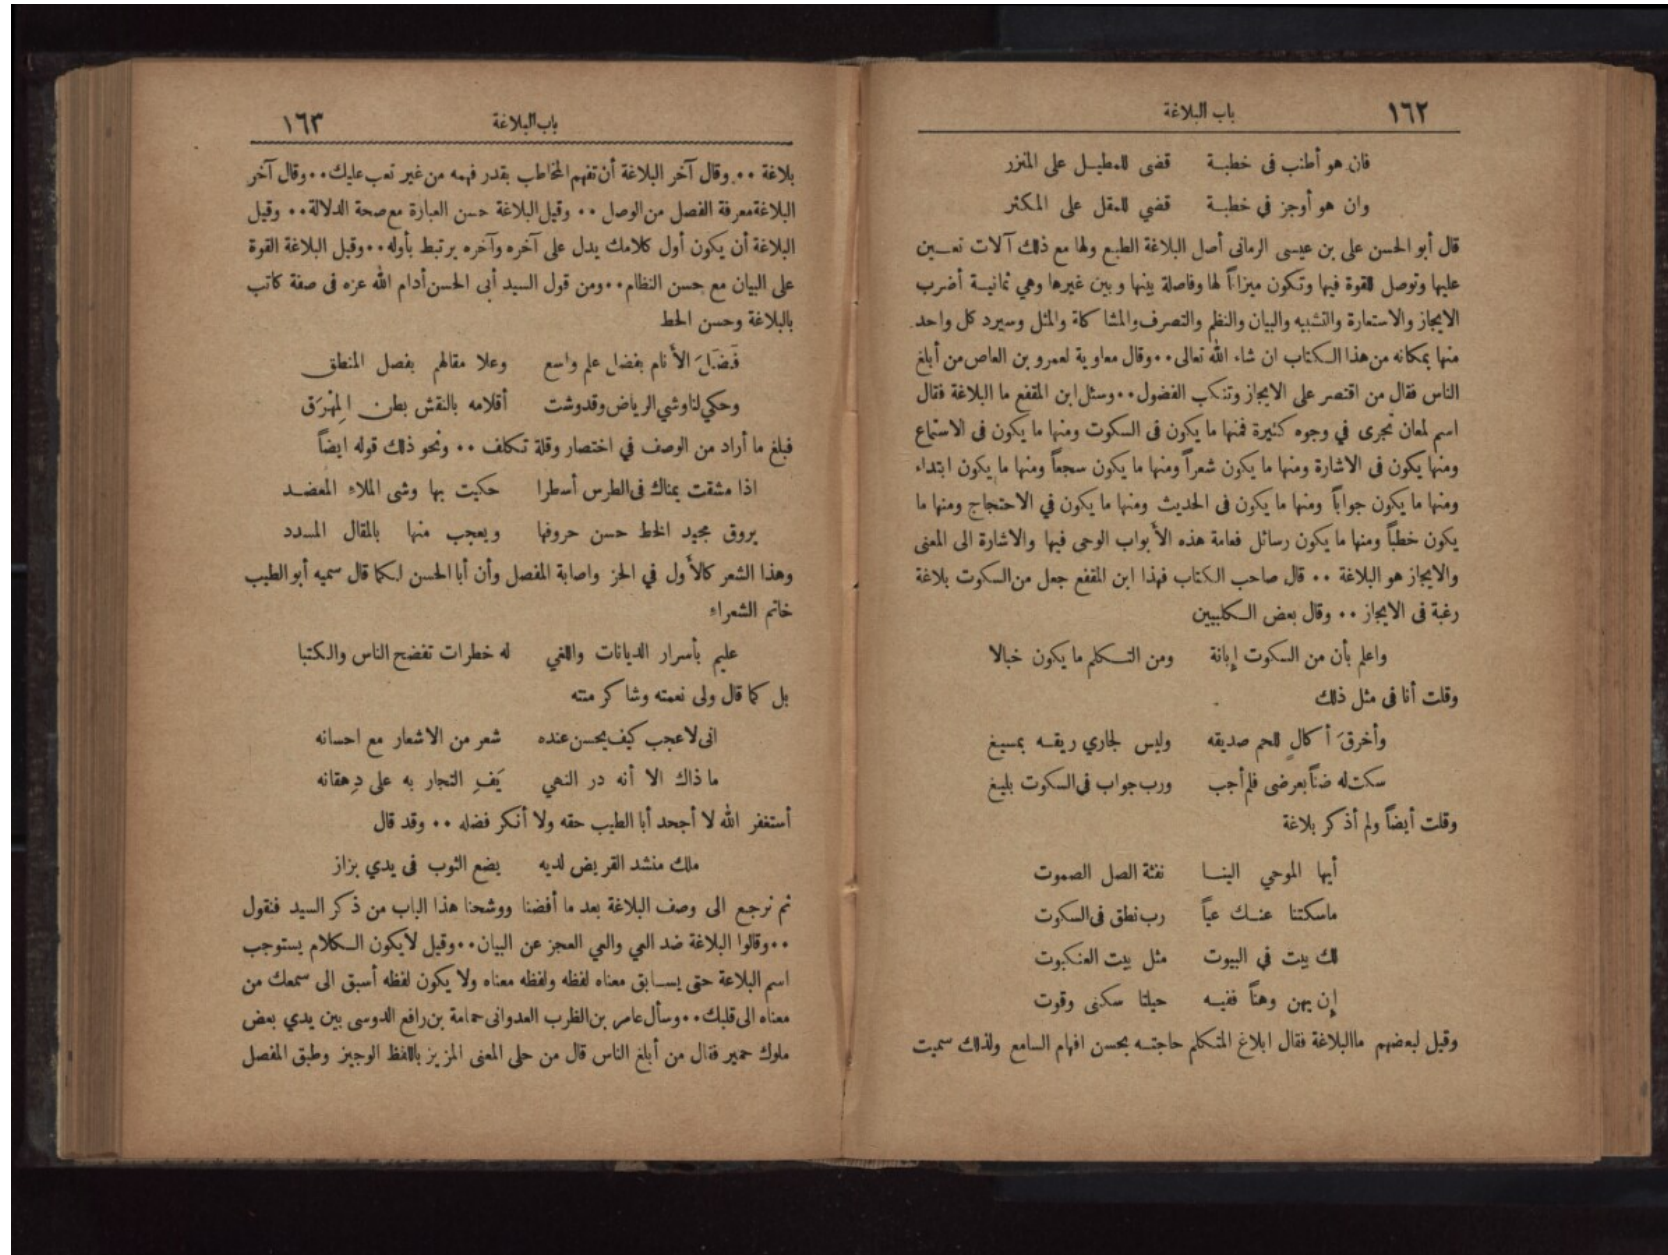 ١٦٢ باب البلاغة
فان هو أطنب فى خطبة قضى للمطيل على المنزر
وان هو أوجز في خطبة قضي للمقل على المكثر
قال أبو الحسن على بن عيسى الرمانى أصل البلاغة الطبع ولها مع ذلك آلات تعين
عليها وتوصل للقوة فيها وتكون ميزاناً لها وفاصلة بينها وبين غيرها وهي ثمانية أضرب
الايجاز والاستعارة والتشبيه والبيان والنظم والتصرف والمشاكلة والمثل وسيرد كل واحد
منها بمكانه من هذا الكتاب ان شاء الله تعالى٠٠وقال معاوية لعمرو بن العاص من أبلغ
الناس فقال من اقتصر على الايجاز وتنكب الفضول٠٠وسئل ابن المقفع ما البلاغة فقال
اسم لمعان تجرى في وجوه كثيرة فمنها ما يكون فى السكوت ومنها ما يكون فى الاستماع
ومنها يكون فى الاشارة ومنها ما يكون شعراً ومنها ما يكون سجعاً ومنها ما يكون ابتداء
ومنها ما يكون جواباً ومنها ما يكون فى الحديث ومنها ما يكون في الاحتجاج ومنها ما
يكون خطباً ومنها ما يكون رسائل فعامة هذه الأبواب الوحى فيها والاشارة الى المعنى
والايجاز هو البلاغة ٠٠ قال صاحب الكتاب فهذا ابن المقفع جعل من السكوت بلاغة
رغبة فى الايجاز ٠٠ وقال بعض الكلبيين
واعلم بأن من السكوت إبانة ومن التكلم ما يكون خبالا
وقلت أنا فى مثل ذلك
وأخرقَ أكالٍ للحم صديقه وليس لجاري ريقه بمسيغ
سكت له ضناً بعرضى فلم أجب ورب جواب فى السكوت بليغ
وقلت أيضاً ولم أذكر بلاغة
أيها الموحي الينا نفثة الصل الصموت
ماسكتنا عنك عياً رب نطق فى السكوت
لك بيت في البيوت مثل بيت العنكبوت
إن يهن وهناً ففيه حيلتا سكنى وقوت
وقيل لبعضهم ماالبلاغة فقال ابلاغ المتكلم حاجته بحسن افهام السامع ولذلك سميت
باب البلاغة ١٦٣
بلاغة ٠٠ وقال آخر البلاغة أن تفهم المخاطب بقدر فهمه من غير تعب عليك٠٠وقال آخر
البلاغة معرفة الفصل من الوصل ٠٠ وقيل البلاغة حسن العبارة مع صحة الدلالة٠٠ وقيل
البلاغة أن يكون أول كلامك يدل على آخره وآخره يرتبط بأوله٠٠وقيل البلاغة القوة
على البيان مع حسن النظام٠٠ومن قول السيد أبى الحسن أدام الله عزه فى صفة كاتب
بالبلاغة وحسن الخط
فَضَلَ الأنام بفضل علم واسع وعلا مقالهم بفصل المنطق
وحكي لنا وشي الرياض وقد وشت أقلامه بالنقش بطن المِهْرَق
فبلغ ما أراد من الوصف في اختصار وقلة تكلف ٠٠ ونحو ذلك قوله ايضاً
اذا مشقت يمناك فى الطرس أسطرا حكيت بها وشى الملاء المعضد
يروق مجيد الخط حسن حروفها ويعجب منها بالمقال المسدد
وهذا الشعر كالأول في الحز واصابة المفصل وأن أبا الحسن لكما قال سميه أبو الطيب
خاتم الشعراء
عليم بأسرار الديانات واللغي له خطرات تفضح الناس والكتبا
بل كما قال ولى نعمته وشاكر منته
انى لاعجب كيف يحسن عنده شعر من الاشعار مع احسانه
ما ذاك الا أنه در النهي يَفِ التجار به على دِهقانه
أستغفر الله لا أجحد أبا الطيب حقه ولا أنكر فضله ٠٠ وقد قال
ملك منشد القريض لديه يضع الثوب فى يدي بزاز
ثم نرجع الى وصف البلاغة بعد ما أفضنا ووشحنا هذا الباب من ذكر السيد فنقول
٠٠وقالوا البلاغة ضد العي والعي العجز عن البيان٠٠وقيل لايكون الكلام يستوجب
اسم البلاغة حتى يسابق معناه لفظه ولفظه معناه ولا يكون لفظه أسبق الى سمعك من
معناه الى قلبك٠٠وسأل عامر بن الظرب العدوانى حمامة بن رافع الدوسى بين يدي بعض
ملوك حمير فقال من أبلغ الناس قال من حلى المعنى المزيز باللفظ الوجيز وطبق المفصل